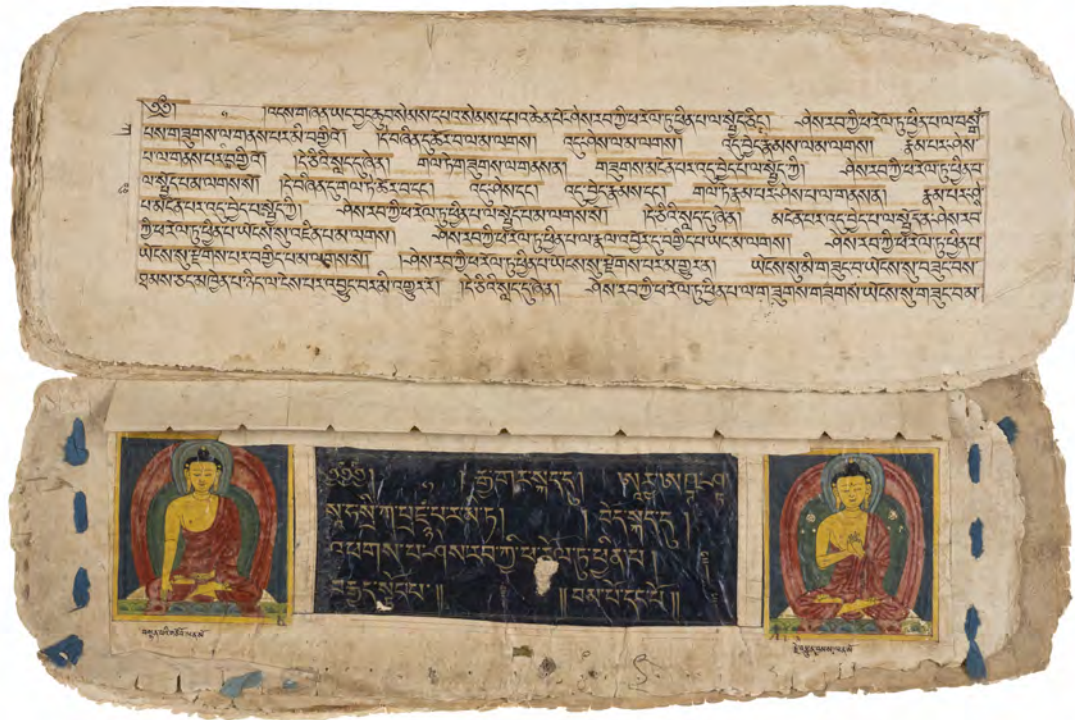 ༄༅། །ལངས་གཞན་ཡང་བྱང་ཆུབ་སེམས་དཔའ་སེམས་དཔའ་ཆེན་པོ་ཤེས་རབ་ཀྱི་ཕ་རོལ་ཏུ་ཕྱིན་པ་ལ་སྤྱོད་ཅིང་། ཤེས་རབ་ཀྱི་ཕ་རོལ་ཏུ་ཕྱིན་པ་ལ་བསྒོ
པས་གཟུགས་ལ་གནས་པར་མི་བགྱིའོ། །དེ་བཞིན་དུ་ཚོར་བ་ལ་མ་ལགས། འདུ་ཤེས་ལ་མ་ལགས། འདུ་བྱེད་རྣམས་ལ་མ་ལགས། རྣམ་པར་ཤེས
པ་ལ་གནས་པར་བགྱིའོ། །དེ་ཅིའི་སླད་དུ་ཞེ་ན། གལ་ཏེ་གཟུགས་ལ་གནས་ན། གཟུགས་མངོན་པར་འདུ་བྱེད་པ་ལ་སྤྱོད་ཀྱི། ཤེས་རབ་ཀྱི་ཕ་རོལ་ཏུ་ཕྱིན་པ
ལ་སྤྱོད་པ་མ་ལགས་སོ། །དེ་བཞིན་དུ་གལ་ཏེ་ཚོར་བ་དང་། འདུ་ཤེས་དང་། འདུ་བྱེད་རྣམས་དང་། གལ་ཏེ་རྣམ་པར་ཤེས་པ་ལ་གནས་ན། རྣམ་པར་ཤེ
པ་མངོན་པར་འདུ་བྱེད་པ་སྤྱོད་ཀྱི། ཤེས་རབ་ཀྱི་ཕ་རོལ་ཏུ་ཕྱིན་པ་ལ་སྤྱོད་པ་མ་ལགས་སོ། །དེ་ཅིའི་སླད་དུ་ཞེ་ན། མངོན་པར་འདུ་བྱེད་པ་ལ་སྤྱོད་ན་ཤེས་རབ
ཀྱི་ཕ་རོལ་ཏུ་ཕྱིན་པ་ཡོངས་སུ་འཛིན་པ་མ་ལགས། ཤེས་རབ་ཀྱི་ཕ་རོལ་ཏུ་ཕྱིན་པ་ལ་རྣལ་འབྱོར་དུ་བགྱིད་པ་ཡང་མ་ལགས། ཤེས་རབ་ཀྱི་ཕ་རོལ་ཏུ་ཕྱིན་པ
ཡོངས་སུ་རྫོགས་པར་བགྱིད་པ་མ་ལགས་སོ། །ཤེས་རབ་ཀྱི་ཕ་རོལ་ཏུ་ཕྱིན་པ་ཡོངས་སུ་རྫོགས་པར་མ་གྱུར་ན། ཡོངས་སུ་མི་གཟུང་བ་ཡོངས་སུ་བཟུང་བས
ཐམས་ཅད་མཁྱེན་པ་ཉིད་ལ་ངེས་པར་འབྱུང་བར་མི་འགྱུར་རོ། །དེ་ཅིའི་སླད་དུ་ཞེ་ན། ཤེས་རབ་ཀྱི་ཕ་རོལ་ཏུ་ཕྱིན་པ་ལ་གཟུགས་ཡོངས་སུ་གཟུང་བ་མ
༄༅༅། །རྒྱ་གར་སྐད་དུ།
སྲི་ཀ་པྲཛྙཱ་པ་ར་མི་ཏ། །བོད་སྐད་དུ།
འཕགས་པ་ཤེས་རབ་ཀྱི་ཕ་རོལ་ཏུ་ཕྱིན་པ།
བརྒྱད་སྟོང་པ། །། །།བམ་པོ་དང་པོ།།